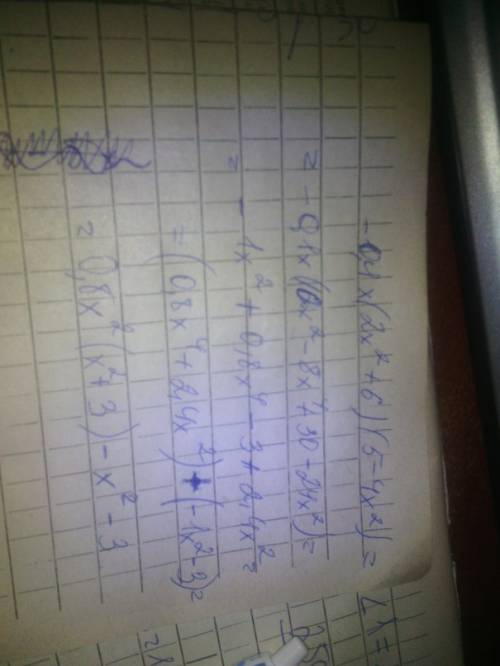 -0,1x(2x²+6)(5-4x²)=
=-0,1x(10x²-8x⁴+30-24x²)=
=-1x²+0,8x⁴-3+2,4x²=
=(0,8x⁴+2,4x²)+(-1x²-3)=
=0,8x²(x²+3)-x²-3